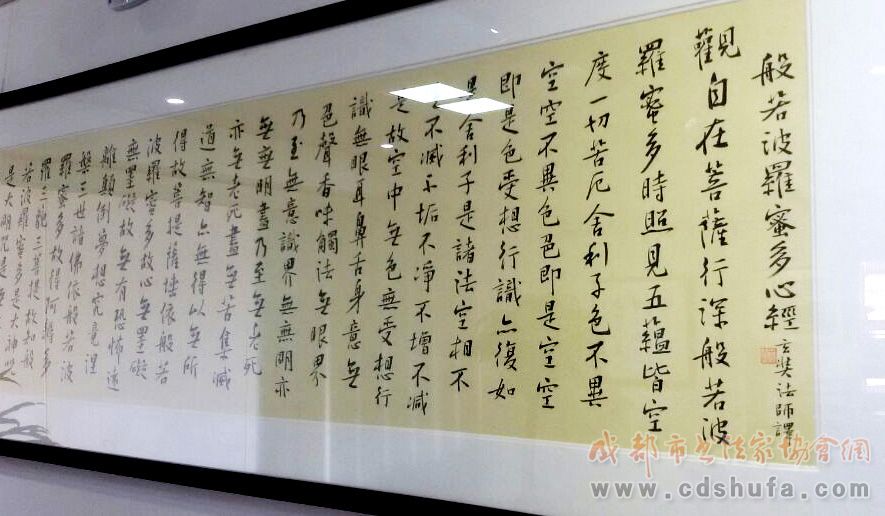 般若波羅蜜多心經 玄奘法師譯
觀自在菩薩行深般若波
羅蜜多時照見五蘊皆空
度一切苦厄舍利子色不異
空空不異色色即是空空
即是色受想行識亦復如
是舍利子是諸法空相不
不滅不垢不淨不增不減
是故空中無色無受想行
識無眼耳鼻舌身意無
色聲香味觸法無眼界
乃至無意識界無無明亦
無無明盡乃至無老死
亦無老死盡無苦集滅
道無智亦無得以無所
得故菩提薩埵依般若
波羅蜜多故心無罣礙
無罣礙故無有恐怖遠
離顛倒夢想究竟涅
槃三世諸佛依般若波
羅蜜多故得阿耨多
羅三藐三菩提故知般
若波羅蜜多是大神
是大明咒是無
成都市书法家協會網
www.cdshufa.com